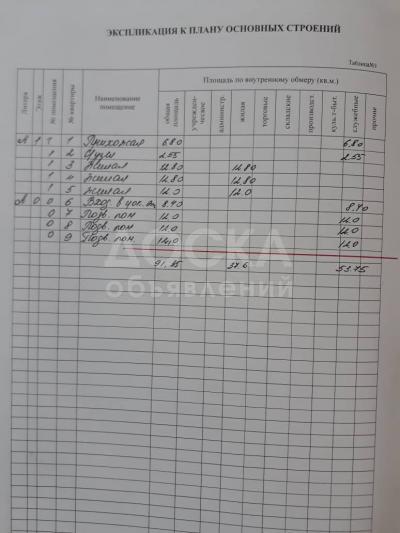 ЭКСПЛИКАЦИЯ К ПЛАНУ ОСНОВНЫХ СТРОЕНИЙ
Таблица№1
Литера Этаж № помещения № квартиры Наименование помещение Площадь по внутреннему обмеру (кв.м.)
общая площадь учрежден-ческие администр. жилая торговые складские производст. культ-быт. служебные прочие
А 1 1 1 Прихожая 6.80 6.80
1 2 С/узел 2.55 2.55
1 3 Жилая 12.80 12.80
1 4 Жилая 12.80 12.80
1 5 Жилая 12.0 12.0
А 0 0 6 Вход в цок. эт 8.40 8.40
0 7 Подв. пом 12.0 12.0
0 8 Подв. пом. 12.0 12.0
0 9 Подв. пом. 12.0 12.0
91,35 37.6 53.75
ДОСКА
объявлений